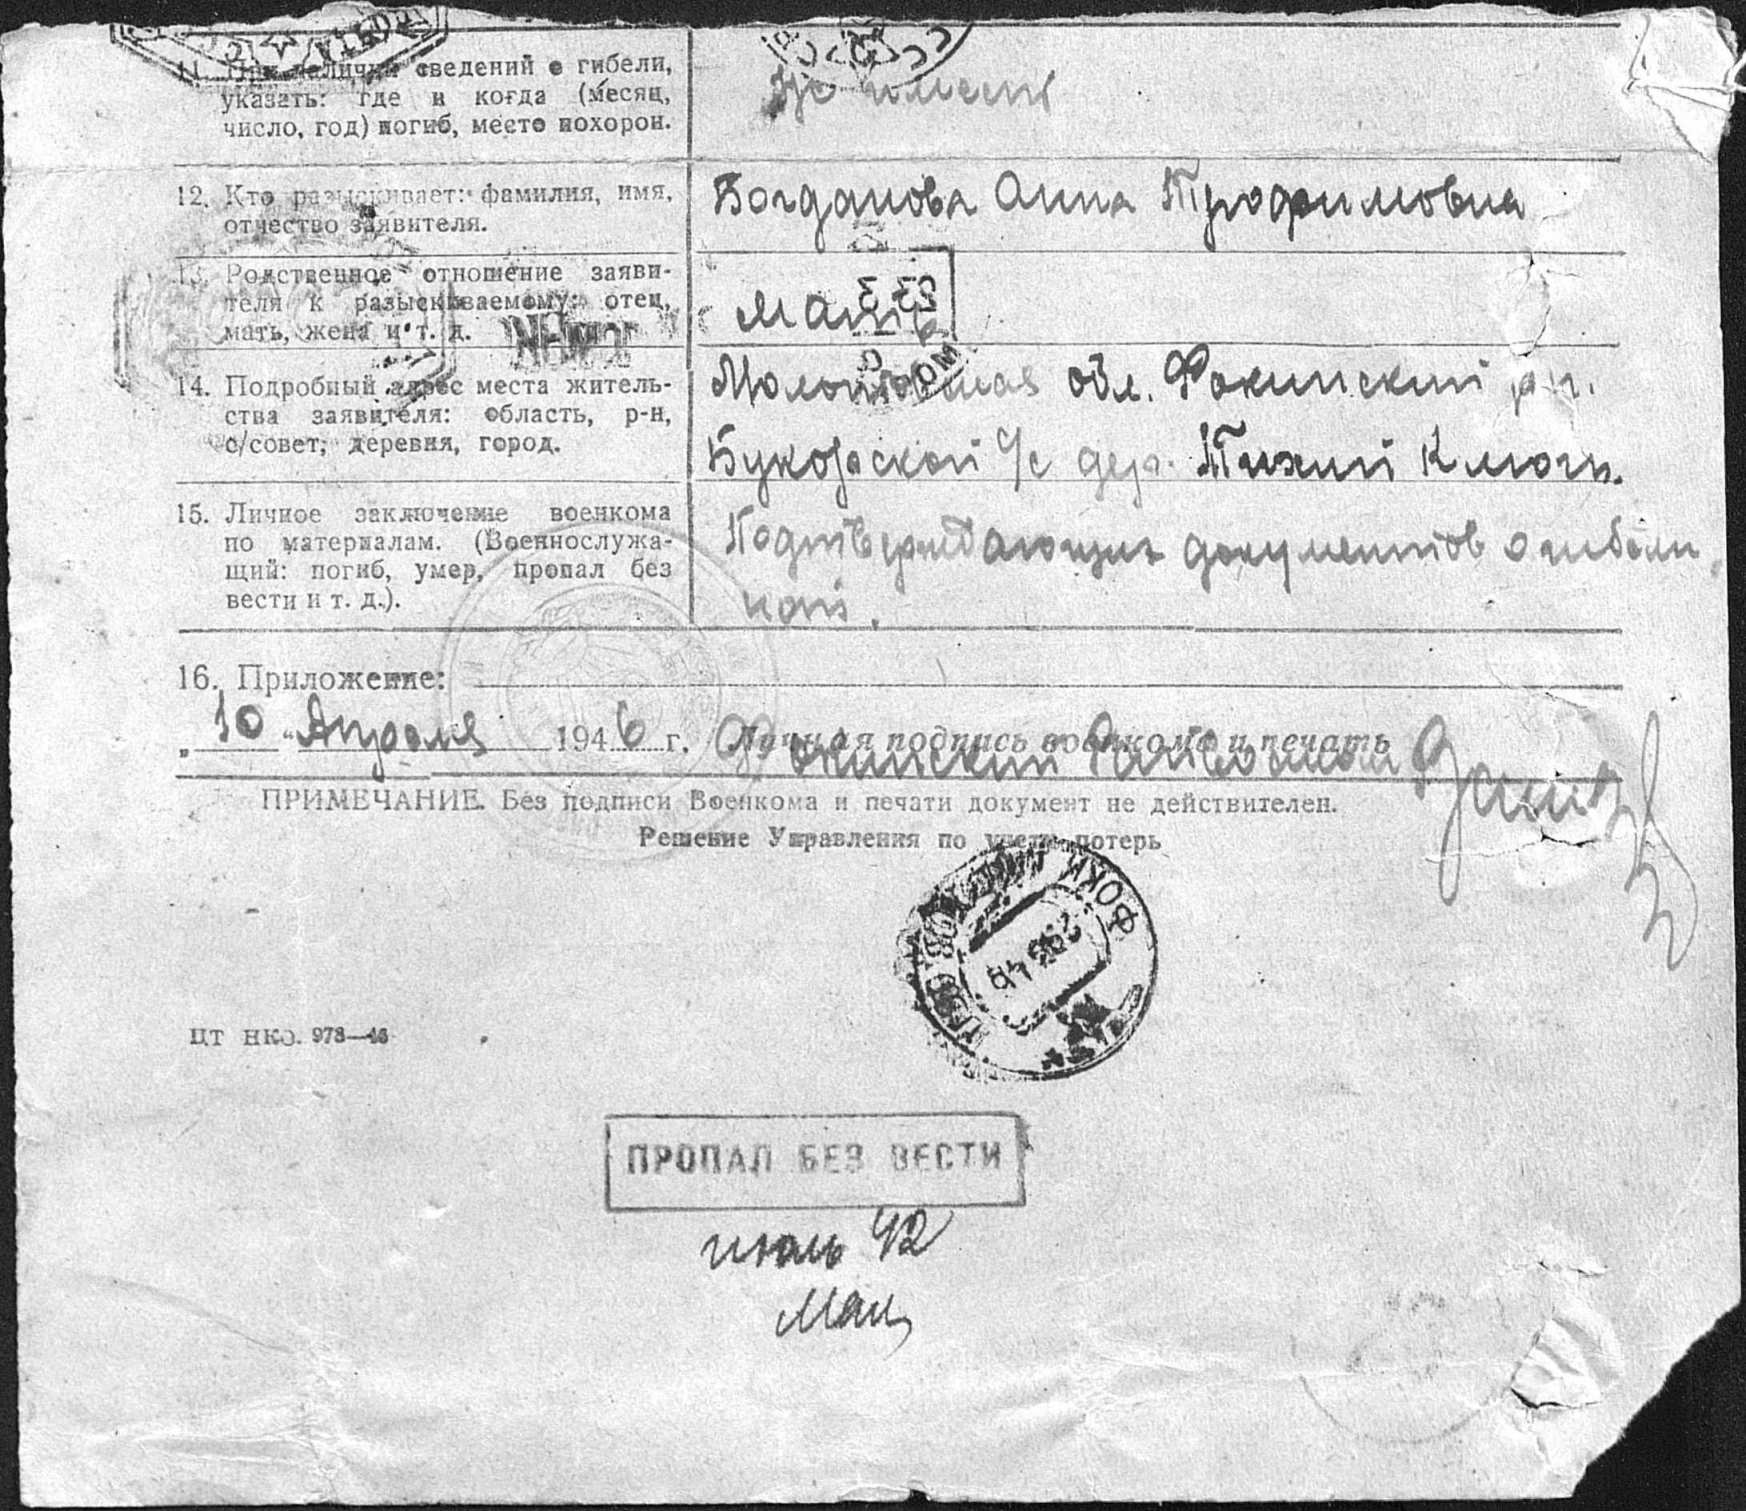 11. При наличии сведений о гибели,
указать: где и когда (месяц,
число, год) погиб, место похорон.
Не
12. Кто разыскивает: фамилия, имя,
отчество заявителя.
Богданова Анна Трофимовна
13. Родственное отношение заяви-
теля к разыскиваемому: отец,
мать, жена и т. д.
мать
14. Подробный адрес места житель-
ства заявителя: область, р-н,
с/совет, деревня, город.
Молотовская обл. Фокинский р-н.
с/с дер. Тихий Ключь.
15. Личное заключение военкома
по материалам. (Военнослужа-
щий: погиб, умер, пропал без
вести и т. д.).
Подтверждающих документов о гибели
нет.
16. Приложение:
„ 10 " Апреля 1946 г. Личная подпись военкома и печать
Фокинский Райвоенком
ПРИМЕЧАНИЕ. Без подписи Военкома и печати документ не действителен.
Решение Управления по учету потерь
ФОКИ
ЦТ НКО. 973—46
ПРОПАЛ БЕЗ ВЕСТИ
июль 42